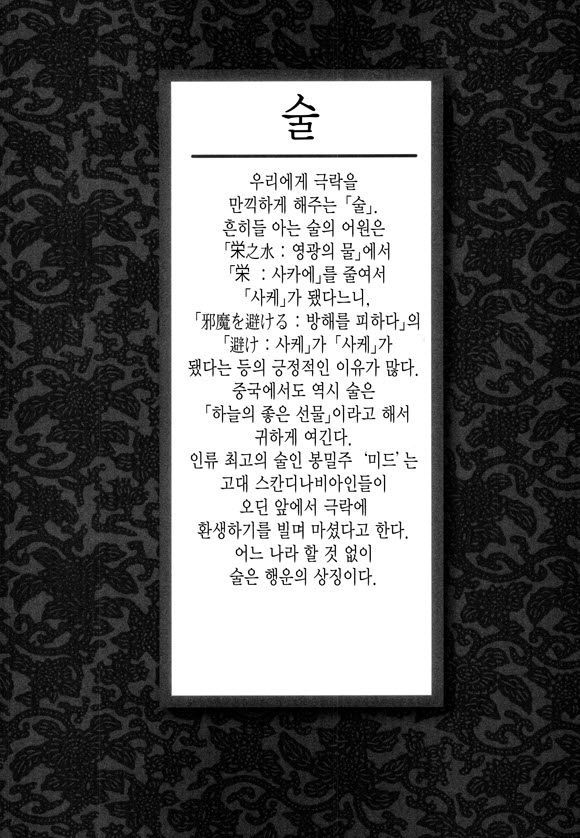 술
우리에게 극락을
만끽하게 해주는 「술」.
흔히들 아는 술의 어원은
「栄之水 : 영광의 물」에서
「栄 : 사카에」를 줄여서
「사케」가 됐다느니,
「邪魔を避ける : 방해를 피하다」의
「避け : 사케」가 「사케」가
됐다는 등의 긍정적인 이유가 많다.
중국에서도 역시 술은
「하늘의 좋은 선물」이라고 해서
귀하게 여긴다.
인류 최고의 술인 봉밀주 ‘미드’는
고대 스칸디나비아인들이
오딘 앞에서 극락에
환생하기를 빌며 마셨다고 한다.
어느 나라 할 것 없이
술은 행운의 상징이다.